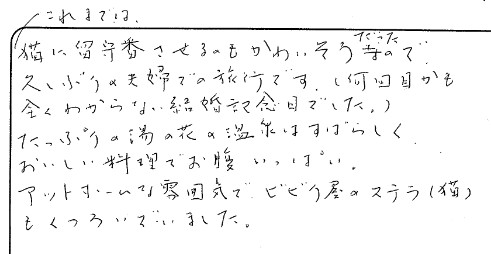 これまでは、
猫に留守番させるのもかわいそうだったので
久しぶりの夫婦での旅行です。(何回目かも
全くわからない結婚記念日でした。)
たっぷりの湯の花の温泉はすばらしく
おいしい料理でお腹いっぱい。
アットホームな雰囲気で、ビビり屋のステラ(猫)
もくつろいでいました。